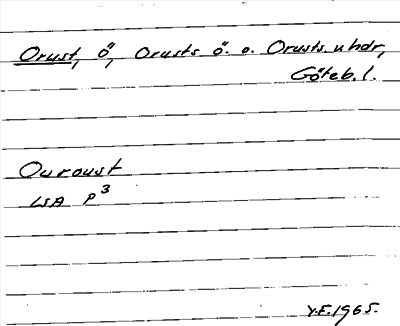 Orust, ö, Orusts ö. o. Orusts v hdr,
Göteb. l.
Ouroust
LSA P3
Y.E. 1965.